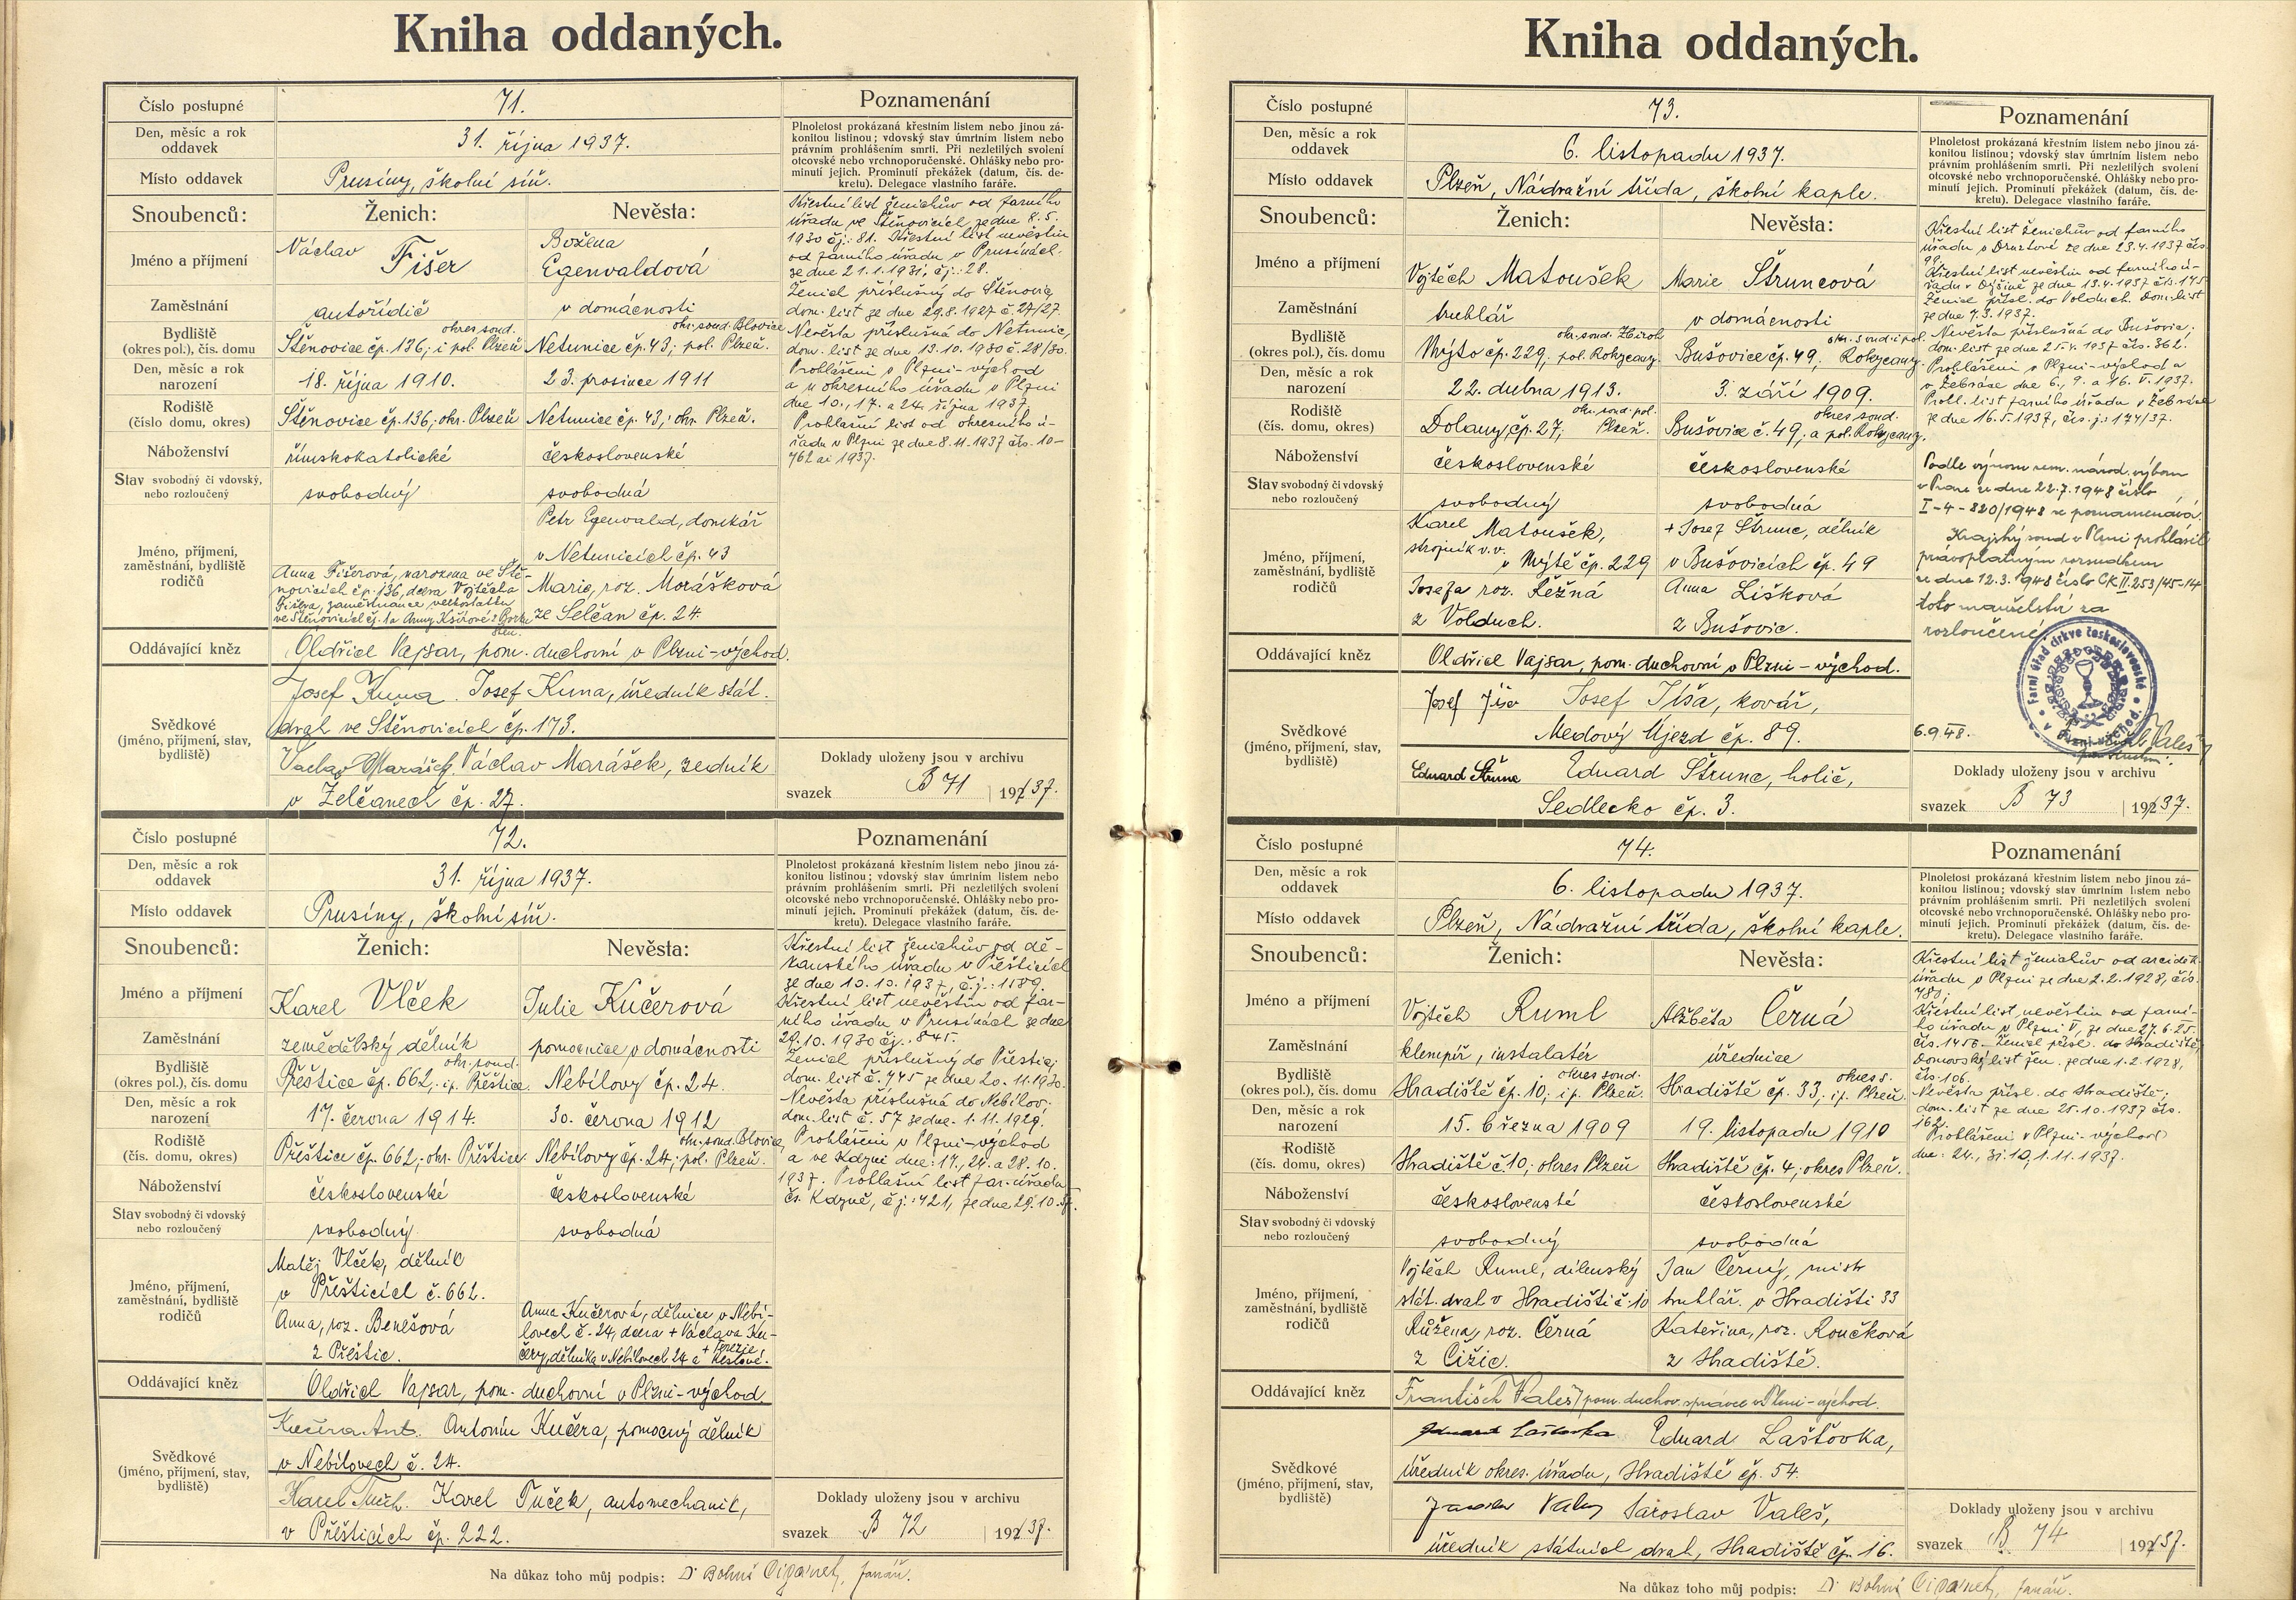 Kniha oddaných.
Číslo postupné 71.
Den, měsíc a rok oddavek 31. října 1937.
Místo oddavek Prusiny, školní síň.
Snoubenců: Ženich: Nevěsta:
Jméno a příjmení Václav Fišer Božena Egenvaldová
Zaměstnání autořidič v domácnosti
Bydliště (okres pol.), čís. domu Štěnovice čp. 136, okres soud. i pol. Plzeň Netunice čp. 43, okr. soud. Blovice pol. Plzeň.
Den, měsíc a rok narození 18. října 1910. 23. prosince 1911
Rodiště (číslo domu, okres) Štěnovice čp. 136, okr. Plzeň Netunice čp. 43, okr. Plzeň.
Náboženství římskokatolické československé
Stav svobodný či vdovský, nebo rozloučený svobodný svobodná
Jméno, příjmení, zaměstnání, bydliště rodičů
Anna Fišerová, narozena ve Ště-
novicích čp. 136, dcera Vojtěcha
Fišera, zaměstnance velkostatku
ve Štěnovicích čp. 1 a Anny
Petr Egenvald, domkář
v Netunicích čp. 43
Marie, roz. Morášková
ze Selčan čp. 24.
Oddávající kněz Oldřich Vajsar, pom. duchovní v Plzni-východ.
Svědkové (jméno, příjmení, stav, bydliště)
Josef Kuna. Josef Kuna, úředník stát.
drah ve Štěnovicích čp. 173.
Václav Marášek, zedník
v Želčanech čp. 27.
Poznamenání
Plnoletost prokázaná křestním listem nebo jinou zá-
konitou listinou; vdovský stav úmrtním listem nebo
právním prohlášením smrti. Při nezletilých svolení
otcovské nebo vrchnoporučenské. Ohlášky nebo pro-
minutí jejich. Prominutí překážek (datum, čís. de-
kretu). Delegace vlastního faráře.
Křestní list ženichův od farního
úřadu ve Štěnovicích ze dne 8. 5.
1930 čj.: 81. Křestní list nevěstin
od farního úřadu v Prusinách
ze dne 21. 1. 1931, čj.: 28.
Ženich příslušný do Štěnovic,
dom. list ze dne 29. 8. 1927 č. 27/27.
Nevěsta příslušná do Netunic,
dom. list ze dne 13. 10. 1930 č. 28/30.
Prohlášeni v Plzni-východ
a u okresního úřadu v Plzni
dne 10., 17. a 24. října 1937.
Prohlašní list od okresního ú-
řadu v Plzni ze dne 8. 11. 1937 čís. 10-
762 ai 1937.
Doklady uloženy jsou v archivu
svazek B 71 1937.
Číslo postupné 72.
Den, měsíc a rok oddavek 31. října 1937.
Místo oddavek Prusiny, školní síň.
Snoubenců: Ženich: Nevěsta:
Jméno a příjmení Karel Vlček Julie Kučerová
Zaměstnání zemědělský dělník pomocnice v domácnosti
Bydliště (okres pol.), čís. domu Přeštice čp. 662, okr. soud. i p. Přeštice. Nebílovy čp. 24.
Den, měsíc a rok narození 17. června 1914. 30. června 1912
Rodiště (čís. domu, okres) Přeštice čp. 662, okr. Přeštice. Nebílovy čp. 24, okr. soud. Blovice, pol. Plzeň.
Náboženství československé československé
Stav svobodný či vdovský nebo rozloučený svobodný svobodná
Jméno, příjmení, zaměstnání, bydliště rodičů
Matěj Vlček, dělník
v Přešticích č. 662.
Anna, roz. Benešová
z Přeštic.
Anna Kučerová, dělnice v Nebí-
lovech č. 24, dcera + Václava Ku-
čery, dělníka v Nebílovech 24 a + Terezie
Oddávající kněz Oldřich Vajsar, pom. duchovní v Plzni-východ.
Svědkové (jméno, příjmení, stav, bydliště)
Kučera Ant. Antonín Kučera, pomocný dělník
v Nebílovech č. 24.
Karel Tuček. Karel Tuček, automechanik,
v Přešticích čp. 222.
Poznamenání
Plnoletost prokázaná křestním listem nebo jinou zá-
konitou listinou; vdovský stav úmrtním listem nebo
právním prohlášením smrti. Při nezletilých svolení
otcovské nebo vrchnoporučenské. Ohlášky nebo pro-
minutí jejich. Prominutí překážek (datum, čís. de-
kretu). Delegace vlastního faráře.
Křestní list ženichův od dě-
kanského úřadu v Přešticích
ze dne 10. 10. 1937, č. j.: 1189.
Křestní list nevěstin od far-
ního úřadu v Prusinách ze dne
29. 10. 1930 čj.: 845.
Ženich příslušný do Přeštic,
dom. list č. 745 ze dne 20. 11. 1930.
Nevěsta příslušná do Nebílov,
dom. list č. 57 ze dne 1. 11. 1929.
Prohlášeni v Plzni-východ
a ve Kdyni dne: 17., 24. a 28. 10.
1937. Prohlašní list far. úřadu
čs. Kdyně, č. j.: 421, ze dne 29. 10. 37.
Doklady uloženy jsou v archivu
svazek B 72 1937.
Na důkaz toho můj podpis: Dr Bohuš Cigánek, farář.
Kniha oddaných.
Číslo postupné 73.
Den, měsíc a rok oddavek 6. listopadu 1937.
Místo oddavek Plzeň, Nádražní třída, školní kaple.
Snoubenců: Ženich: Nevěsta:
Jméno a příjmení Vojtěch Matoušek Marie Štruncová
Zaměstnání truhlář v domácnosti
Bydliště (okres pol.), čís. domu Mýto čp. 229, okr. soud. Zbiroh pol. Rokycany. Bušovice čp. 49, okr. soud. i pol. Rokycany.
Den, měsíc a rok narození 22. dubna 1913. 3. září 1909.
Rodiště (čís. domu, okres) Dolany čp. 27, okr. soud. pol. Plzeň. Bušovice č. 49, okres soud. a pol. Rokycany.
Náboženství československé československé
Stav svobodný či vdovský nebo rozloučený svobodný svobodná
Jméno, příjmení, zaměstnání, bydliště rodičů
Karel Matoušek,
strojník v. v.
v Mýtě čp. 229
Josefa roz. Řežná
z Volduch.
+ Josef Štrunc, dělník
v Bušovicích čp. 49
Anna Lišková
z Bušovic.
Oddávající kněz Oldřich Vajsar, pom. duchovní v Plzni-východ.
Svědkové (jméno, příjmení, stav, bydliště)
Josef Jíša Josef Jíša, kovář,
Medový Újezd čp. 89.
Eduard Štrunc Eduard Štrunc, holič,
Sedlecko čp. 3.
Poznamenání
Plnoletost prokázaná křestním listem nebo jinou zá-
konitou listinou; vdovský stav úmrtním listem nebo
právním prohlášením smrti. Při nezletilých svolení
otcovské nebo vrchnoporučenské. Ohlášky nebo pro-
minutí jejich. Prominutí překážek (datum, čís. de-
kretu). Delegace vlastního faráře.
Křestní list ženichův od farního
úřadu v Druztové ze dne 23. 4. 1937 čís.
99.
Křestní list nevěstin od farního ú-
řadu v Dýšině ze dne 13. 4. 1937 čís. 145
Ženich přísl. do Volduch. Dom. list
ze dne 7. 3. 1937.
Nevěsta příslušná do Bušovic,
dom. list ze dne 21. 4. 1937 čís. 362.
Prohlášeni v Plzni-východ a
v Žebráce dne 6., 9. a 16. V. 1937.
Prohl. list farního úřadu v Žebráce
ze dne 16. 5. 1937, čís. j. 174/37.
Podle výnosu zem. národ. výboru
v Praze ze dne 22. 7. 1948 číslo
I-4-820/1948 se poznamenává:
Krajský soud v Plzni prohlásil
právoplatným rozsudkem
ze dne 12. 3. 1948 číslo CK II 253/45-14
toto manželství za
rozloučené.
Farní úřad církve československé v Plzni-východ.
6. 9. 48.
Doklady uloženy jsou v archivu
svazek B 73 1937.
Číslo postupné 74.
Den, měsíc a rok oddavek 6. listopadu 1937.
Místo oddavek Plzeň, Nádražní třída, školní kaple.
Snoubenců: Ženich: Nevěsta:
Jméno a příjmení Vojtěch Ruml Alžběta Černá
Zaměstnání klempíř, instalatér úřednice
Bydliště (okres pol.), čís. domu Hradiště čp. 10, okres soud. i p. Plzeň. Hradiště čp. 33, okres s. i p. Plzeň.
Den, měsíc a rok narození 15. března 1909 19. listopadu 1910
Rodiště (čís. domu, okres) Hradiště č 10, okres Plzeň Hradiště čp. 4, okres Plzeň.
Náboženství československé československé
Stav svobodný či vdovský nebo rozloučený svobodný svobodná
Jméno, příjmení, zaměstnání, bydliště rodičů
Vojtěch Ruml, dílenský
stát. drah v Hradišti č. 10
Růžena, roz. Černá
z Čižic.
Jan Černý, mistr
truhlář. v Hradišti 33
Kateřina, roz. Roučková
z Hradiště.
Oddávající kněz František Valeš, pom. duchov. správce v Plzni-východ.
Svědkové (jméno, příjmení, stav, bydliště)
Eduard Laštovka Eduard Laštovka,
úředník okres. úřadu, Hradiště čp. 54.
Jaroslav Valeš Jaroslav Valeš,
úředník státních drah, Hradiště čp. 16.
Poznamenání
Plnoletost prokázaná křestním listem nebo jinou zá-
konitou listinou; vdovský stav úmrtním listem nebo
právním prohlášením smrti. Při nezletilých svolení
otcovské nebo vrchnoporučenské. Ohlášky nebo pro-
minutí jejich. Prominutí překážek (datum, čís. de-
kretu). Delegace vlastního faráře.
Křestní list ženichův od arciděk.
úřadu v Plzni ze dne 2. 2. 1928, čís.
780;
Křestní list nevěstin od farní-
ho úřadu v Plzni V, ze dne 27. 6. 25.
čís. 1456. Ženich přísl. do Hradiště,
Domovský list žen. ze dne 1. 2. 1928,
čís. 106.
Nevěsta přísl. do Hradiště,
dom. list ze dne 25. 10. 1937 čís.
162.
Prohlášeni v Plzni-východ
dne: 24., 31. 10, 1. 11. 1937.
Doklady uloženy jsou v archivu
svazek B 74 1937.
Na důkaz toho můj podpis: Dr Bohuš Cigánek, farář.